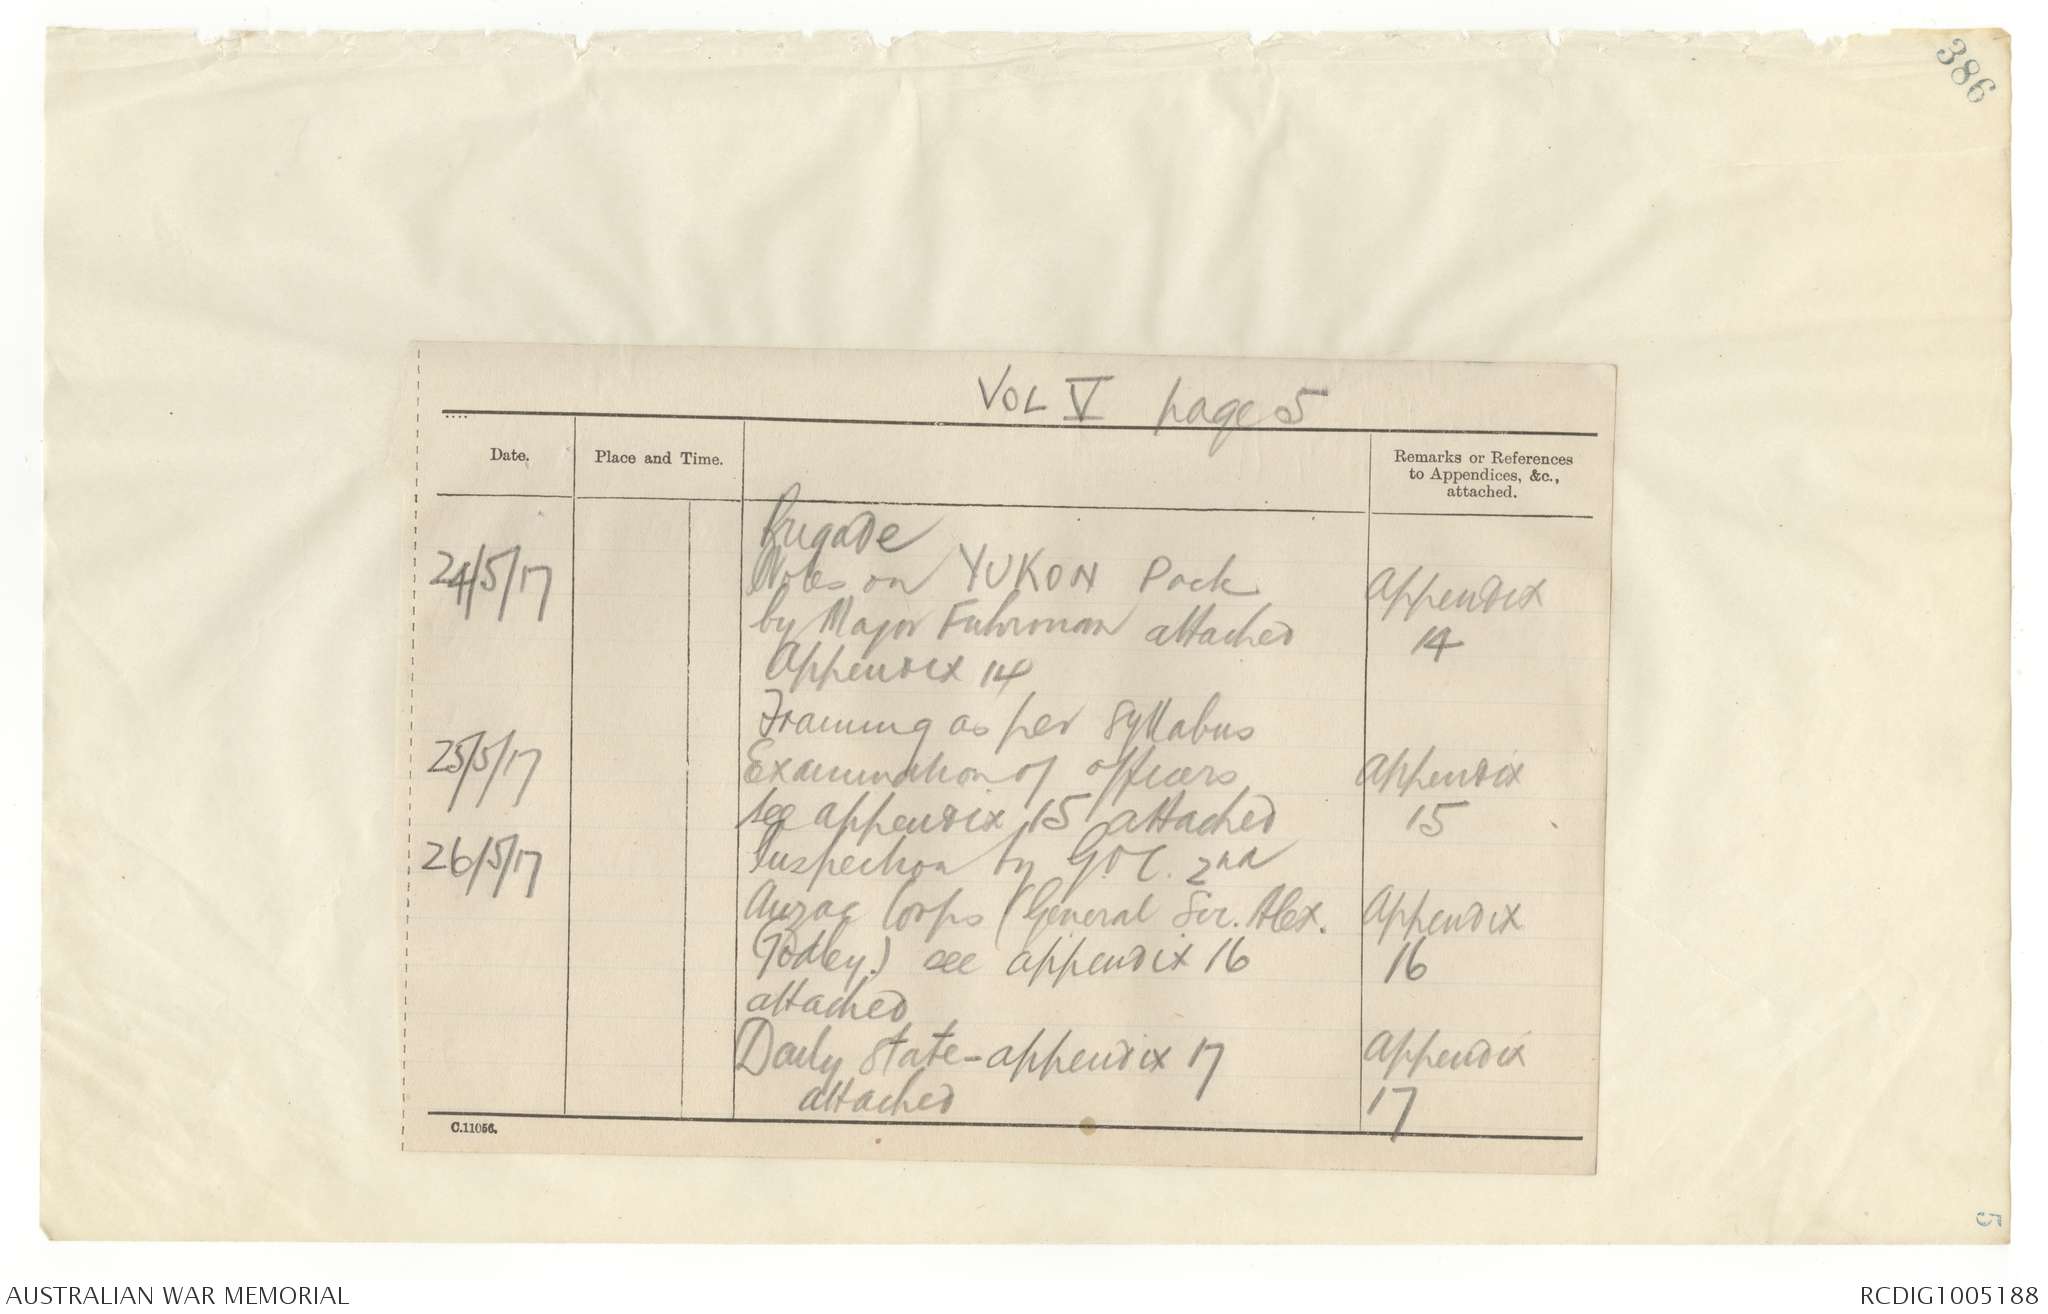 386
VOL V page 5
Date.
Place and Time.
Remarks or References
to Appendices, &c.,
attached.
Brigade
24/5/17 Notes on YUKON Pack Appendix
by Major Fuhrman attached 14
Appendix 14
Training as per Syllabus
25/5/17 Examination of officers Appendix
see appendix 15 attached 15
26/5/17 Inspection by G.O.C. 2nd
Anzac Corps (General Sir. Alex. Appendix
Godley.) see appendix 16 16
attached
Daily state - appendix 17 Appendix
attached 17
C.11056.
5
AUSTRALIAN WAR MEMORIAL
RCDIG1005188